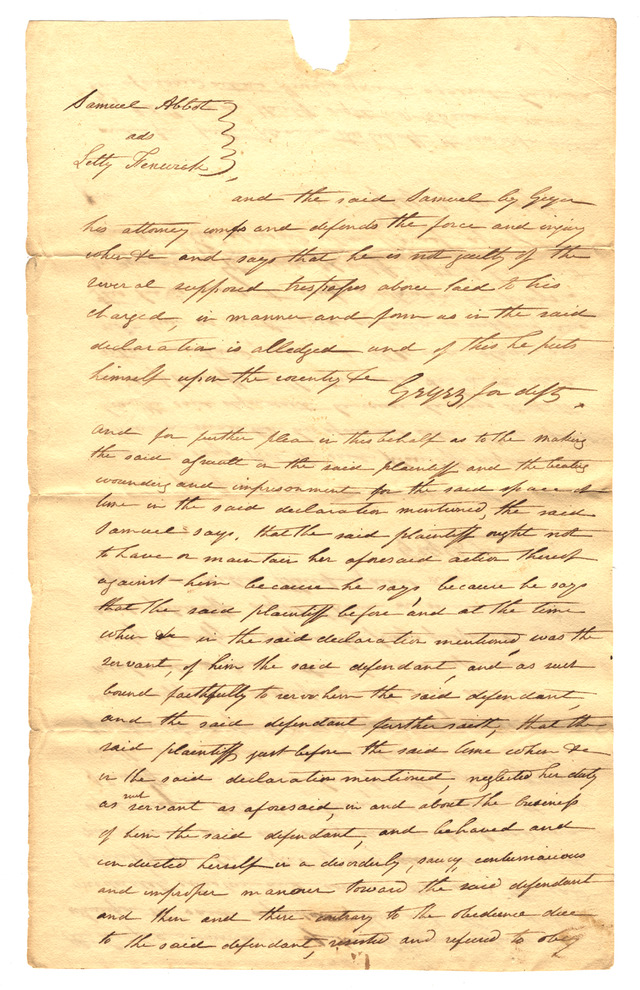 Samuel Abbot
ads
Letty Fenwick
and the said Samuel by Geyer
his attorney comes and defends the force and injury
when &c and says that he is not guilty of the
several supposed trespasses above laid to his
charged, in manner and form as in the said
declaration is alledged and of this he puts
himself upon the country &c
Geyer for deft
and for further plea in this behalf as to the making
the said assault on the said plaintiff and the beating
wounding and imprisonment for the said space of
time in the said declaration mentioned, the said
Samuel says, that the said plaintiff ought not
to have or maintain her aforesaid action thereof
against him because he says, because he says
that the said plaintiff before and at the time
when &c in the said declaration mentioned, was the
servant, of him the said defendant, and as such
bound faithfully to serve him the said defendant,
and the said defendant further saith, that the
said plaintiff just before the said time when &c
in the said declaration mentioned, neglected her duty
as such servant as aforesaid, in and about the business
of him the said defendant, and behaved and
conducted herself in a disorderly, saucy, contumacious
and improper manner toward the said defendant
and then and there contrary to the obedience due
to the said defendant, resisted and refused to obey